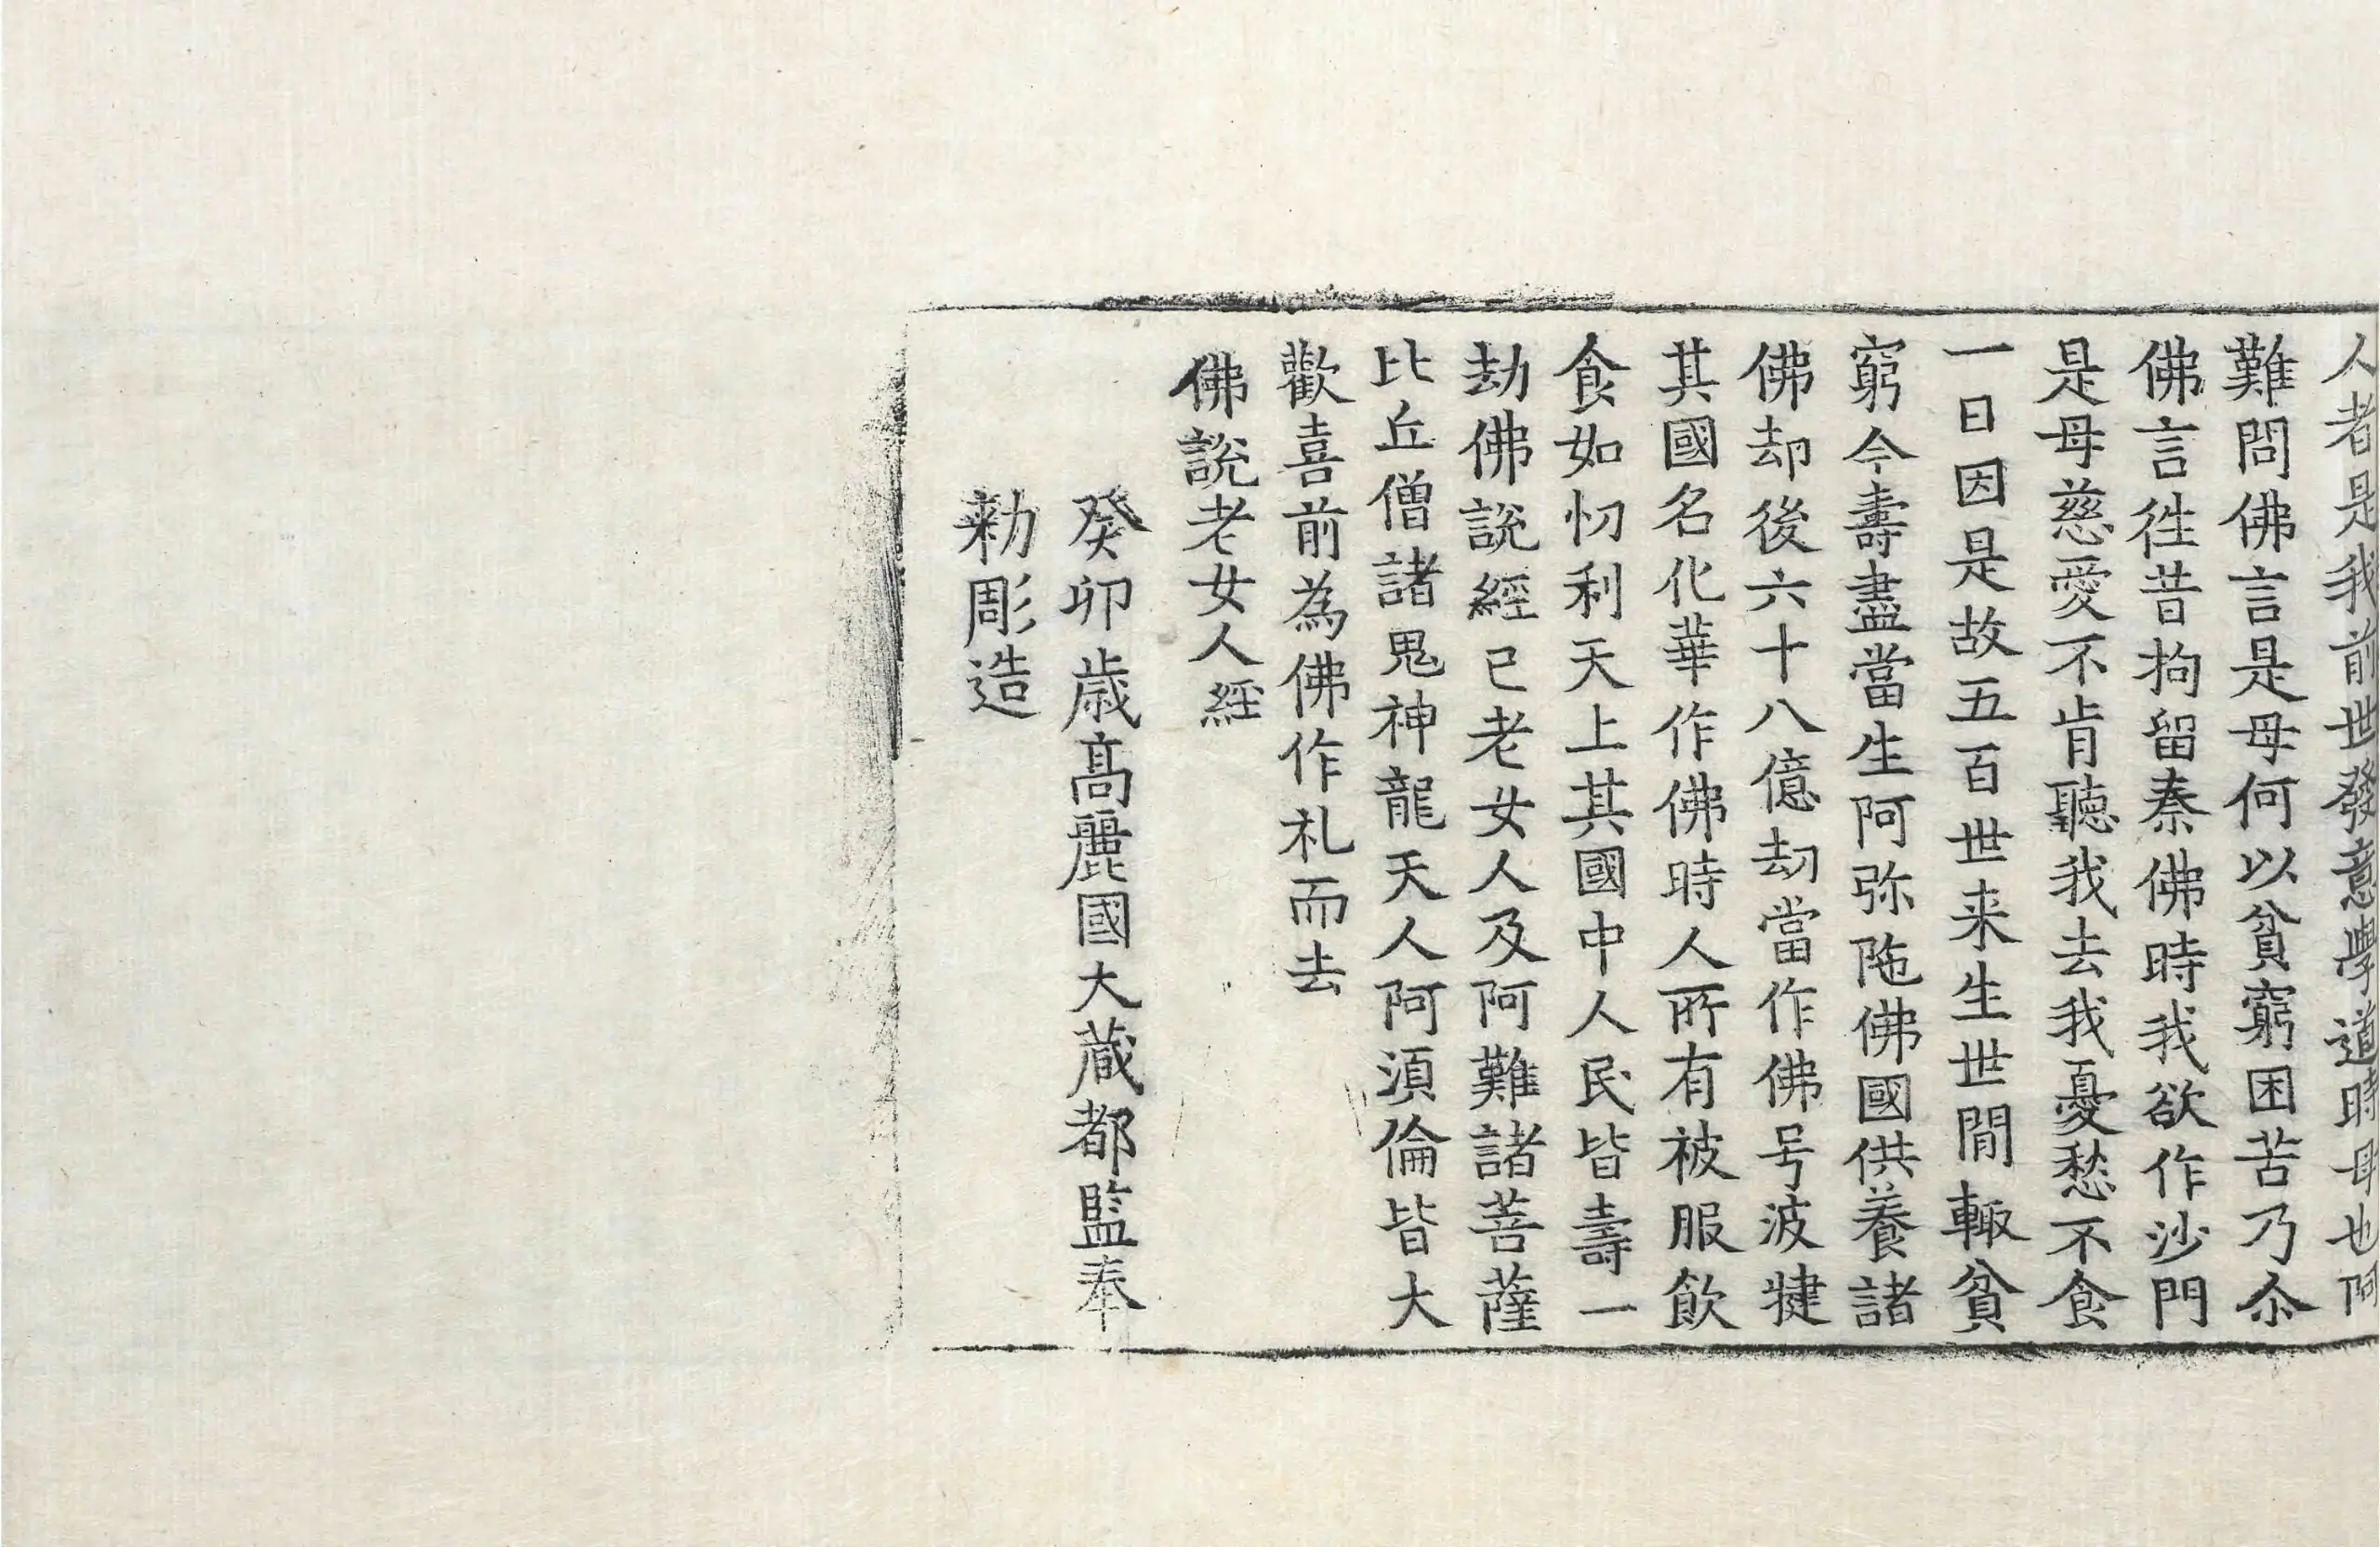 人者是我前世發意學道時母也阿
難問佛言是母何以貧窮困苦乃尒
佛言徃昔拘留秦佛時我欲作沙門
是母慈愛不肯聽我去我憂愁不食
一日因是故五百世来生世閒輙貧
窮今壽盡當生阿弥陁佛國供養諸
佛却後六十八億劫當作佛号波犍
其國名化華作佛時人所有被服飲
食如忉利天上其國中人民皆壽一
劫佛說經已老女人及阿難諸菩薩
比丘僧諸鬼神龍天人阿須倫皆大
歡喜前為佛作礼而去
佛說老女人經
癸卯歲高麗國大藏都監奉
勅彫造